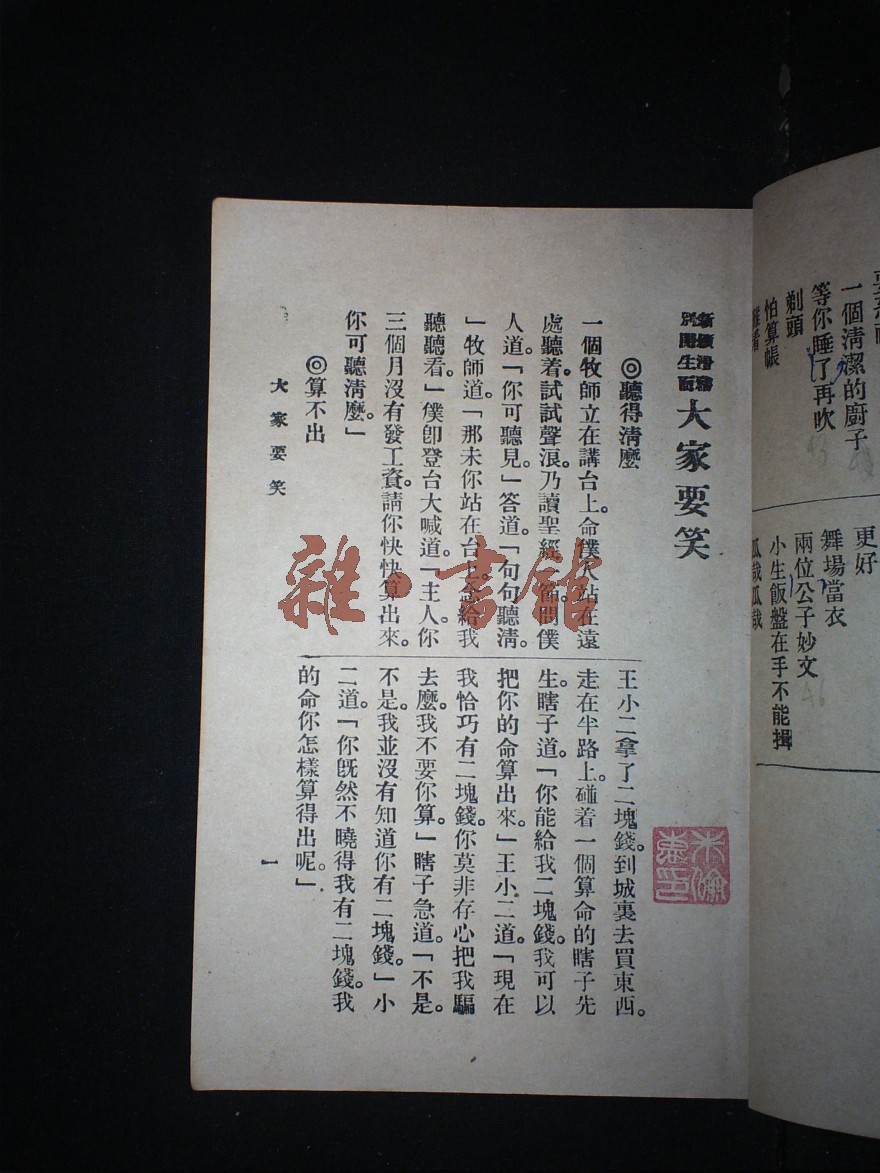 更好
舞場當衣
兩位公子妙文
小生飯盤在手不能揖
瓜哉瓜哉
一個清潔的廚子
等你睡了再吹
剃頭
怕算帳
別開生面
大家要笑
◎聽得清麼
一個牧師立在講台上。命僕人站在遠
處聽着。試試聲浪。乃讀聖經一節。問僕
人道。「你可聽見。」答道。「句句聽清。
」牧師道。「那末你站在台上。念給我
聽聽看。」僕卽登台大喊道。「主人。你
三個月沒有發工資。請你快快算出來。
你可聽清麼。」
◎算不出
王小二拿了二塊錢。到城裏去買東西。
走在半路上。碰着一個算命的瞎子先
生。瞎子道。「你能給我二塊錢。我可以
把你的命算出來。」王小二道。「現在
我恰巧有二塊錢。你莫非存心把我騙
去麼。我不要你算。」瞎子急道。「不是。
不是。我並沒有知道你有二塊錢。」小
二道。「你旣然不曉得我有二塊錢。我
的命你怎樣算得出呢。」
大家要笑
一
雜·書館